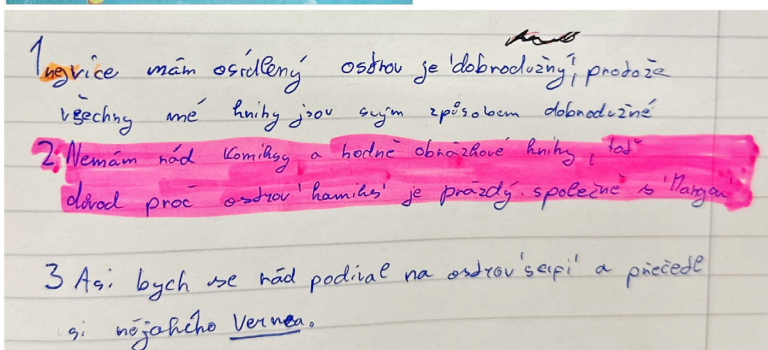 1 nejvíce mám osídlený ostrov je 'dobrodužný', protože
všechny mé knihy jsou svým způsobem dobrodužné
2. Nemám rád komiksy a hodně obrázkové knihy,
důvod proč ostrov 'komiks' je prázdý. společně s 'Mangou'
3 Asi bych se rád podíval na ostrov 'scifi' a přečetl
si nějakého Vernea.